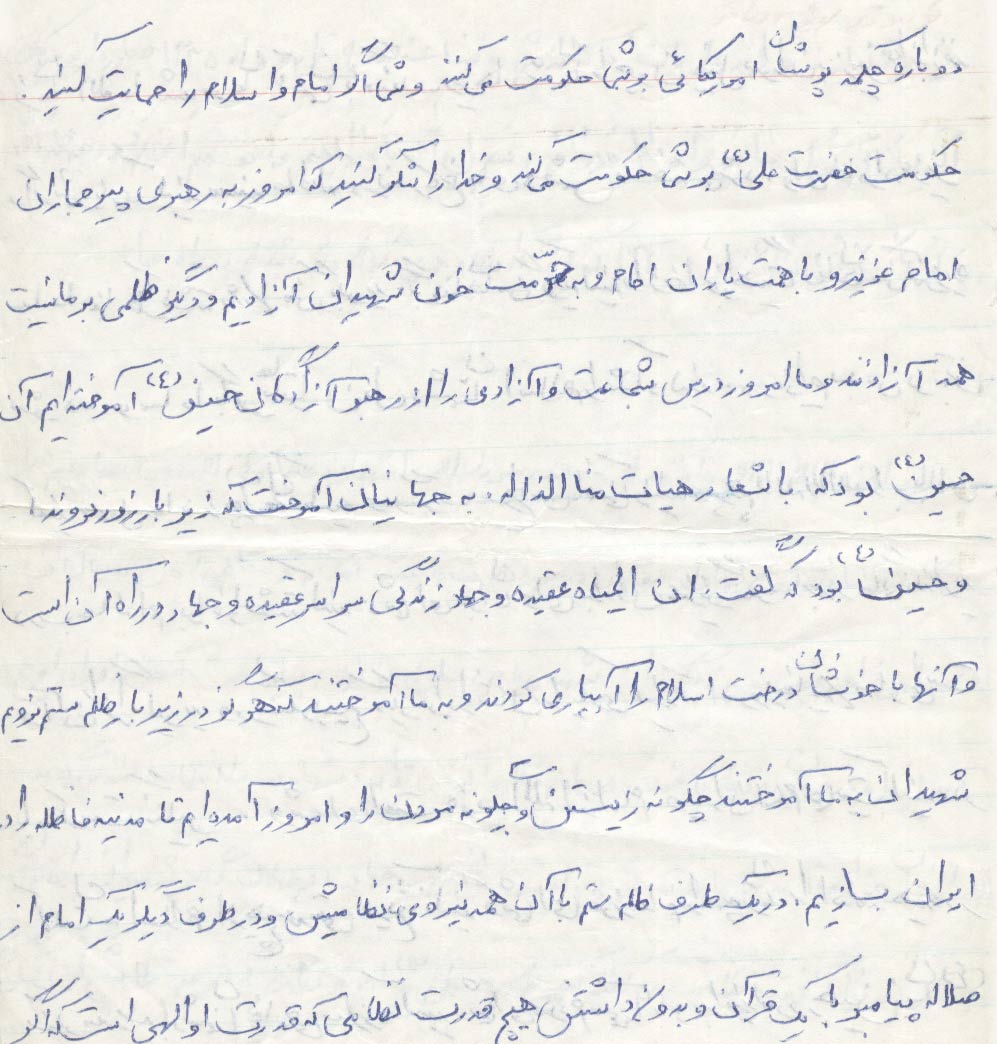 دوباره چکمه پوشان امریکائی بر شما حکومت می کنند و شما اگر امام و اسلام را حمایت کنید.
حکومت حضرت علی (ع) بر شما حکومت می کند و خدا را شکر کنید که امروز به رهبری پیر جماران
امام عزیز و با همت یاران امام و به حرّمت خون شهیدان آزادیم و دیگر ظلمی بر ما نیست
همه آزادند و ما امروز درس شجاعت و آزادی را از رهبر آزادگان حسین (ع) آموخته ایم آن
حسین (ع) بود که با شعار هیهات منا الذاله. به جهانیان آموخت که زیر بار زور نروند.
و حسین (ع) بود که گفت. ان الحیاه عقیده و جهاد زندگی سراسر عقیده و جهاد در راه آن است
و آنها با خونشان درخت اسلام را آبیاری کردند و به ما آموختند که هرگز در زیر بار ظلم ستم نرویم
شهیدان به ما آموختند چگونه زیستن و چگونه مردن را و امروز آمده ایم تا مدنیه فاظله را در
ایران بسازیم. در یک طرف ظالم ستم با آن همه نیروی نظامیش و در طرف دیگر یک امام از
صلاله پیامبر با یک قرآن و بدون داشتن هیچ قدرت نظامی که قدرت او الهی است که اگر